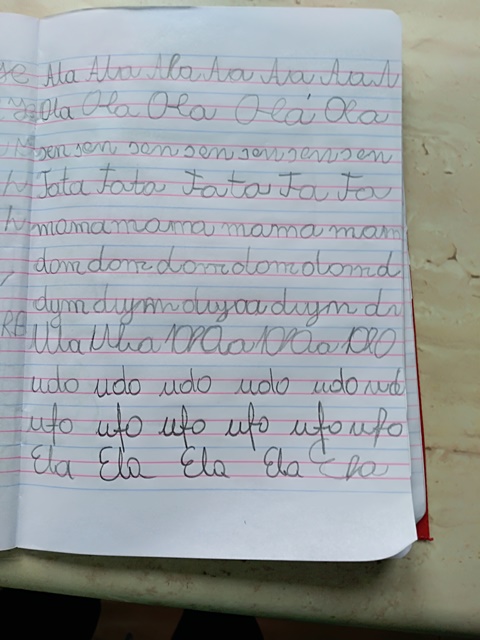 Ala Ala Ala Aa Aa Aaa A
Ola Ola Ola Olá Ola
sen sen sen sen sen sen sen
Tata Tata Tata Ta Ta
mama mama mama mam
dom dom dom dom dom d
dym dym dym
Ula Ula
udo udo udo udo udo udo
ufo ufo ufo ufo ufo ufo
Ela Ela Ela Ela Ela